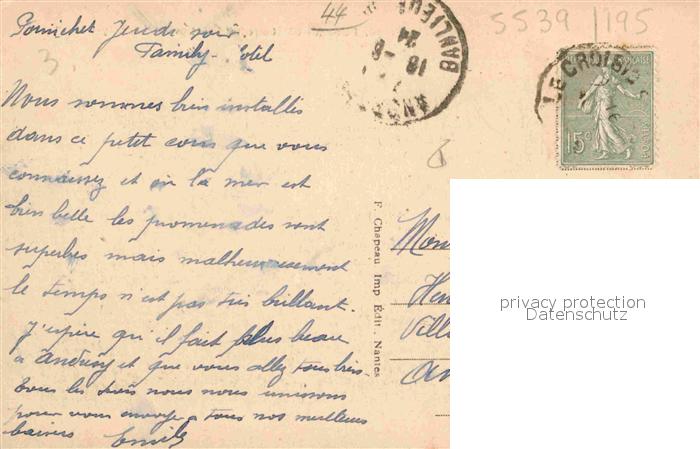 44
5539 1195
3
Pornichet Jeudi soir
Family-Hotel
Nous sommes bien installés
dans ce petit coin que vous
connaissez et où la mer est
bien belle les promenades sont
superbes mais malheureusement
le temps n'est pas très brillant.
J'espère qu'il fait plus beau
à Andrésy et que vous allez tous bien.
Tous les trois nous nous unissons
pour vous envoyer à tous nos meilleurs
baisers
BANLIEUE
18 - 8
24
LE CROISIC
15c
F. Chapeau Imp Édit., Nantes
Hen
Villa
privacy protection
Datenschutz